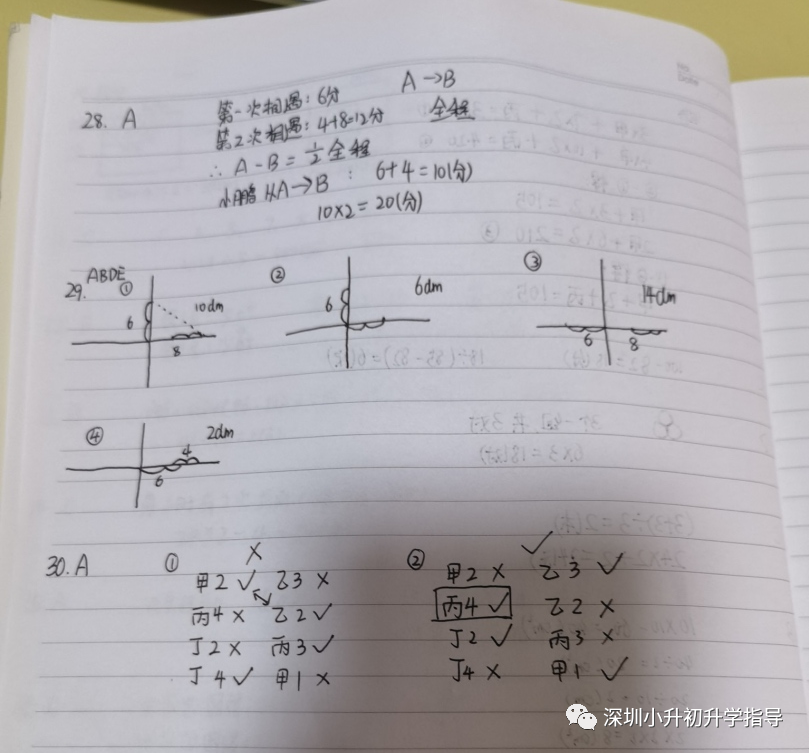 28. A
第一次相遇:6分
A→B
第2次相遇:4+8=12分
全程
∴ A-B=1/2全程
小鹏从A→B : 6+4=10(分)
10×2=20(分)
29. ABDE
① 6 10dm 8
② 6 6dm
③ 14dm 6 8
④ 2dm 4 6
30. A
① × ② ✓
甲2 ✓ 乙3 × 甲2 × 乙3 ✓
丙4 × 乙2 ✓ 丙4 ✓ 乙2 ×
丁2 × 丙3 ✓ 丁2 ✓ 丙3 ×
丁4 ✓ 甲1 × 丁4 × 甲1 ✓
深圳小升初升学指导